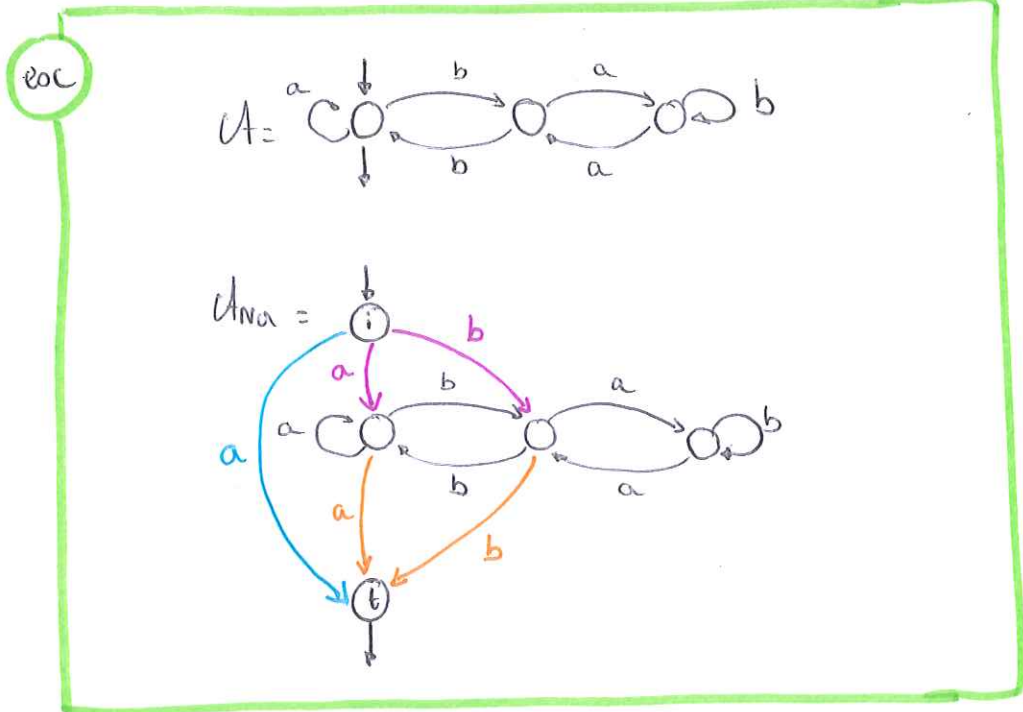 eoc
b a
a b
A =
b a
A_Na =
i
b
a b a
a b
a
b a
a
b
t